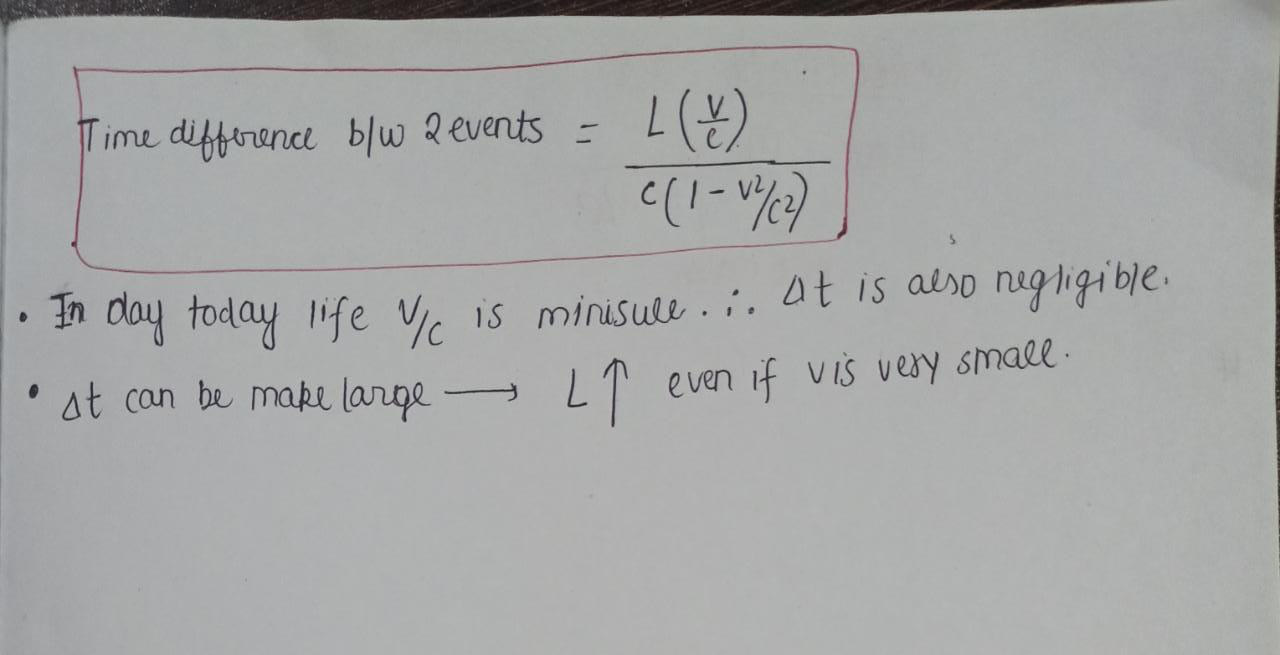 Time difference b/w 2 events = L(v/c) / c(1 - v²/c²)
• In day today life v/c is minisule. ∴ Δt is also negligible.
• Δt can be make large → L↑ even if v is very small.